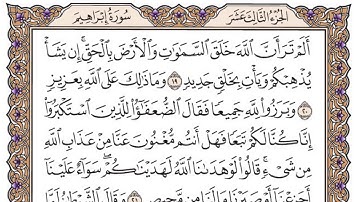 سُورَةُ إِبْرَاهِيم
الجُزْءُ الثَّالِثَ عَشَرَ
أَلَمْ تَرَ أَنَّ ٱللَّهَ خَلَقَ ٱلسَّمَٰوَٰتِ وَٱلْأَرْضَ بِٱلْحَقِّ ۚ إِن يَشَأْ
يُذْهِبْكُمْ وَيَأْتِ بِخَلْقٍ جَدِيدٍ ١٩ وَمَا ذَٰلِكَ عَلَى ٱللَّهِ بِعَزِيزٍ
٢٠ وَبَرَزُوا۟ لِلَّهِ جَمِيعًا فَقَالَ ٱلضُّعَفَٰٓؤُا۟ لِلَّذِينَ ٱسْتَكْبَرُوٓا۟
إِنَّا كُنَّا لَكُمْ تَبَعًا فَهَلْ أَنتُم مُّغْنُونَ عَنَّا مِنْ عَذَابِ ٱللَّهِ
مِن شَىْءٍ ۚ قَالُوا۟ لَوْ هَدَىٰنَا ٱللَّهُ لَهَدَيْنَٰكُمْ ۖ سَوَآءٌ عَلَيْنَآ
أَجَزِعْنَآ أَمْ صَبَرْنَا مَا لَنَا مِن مَّحِيصٍ ٢١ وَقَالَ ٱلشَّيْطَٰنُ لَمَّا